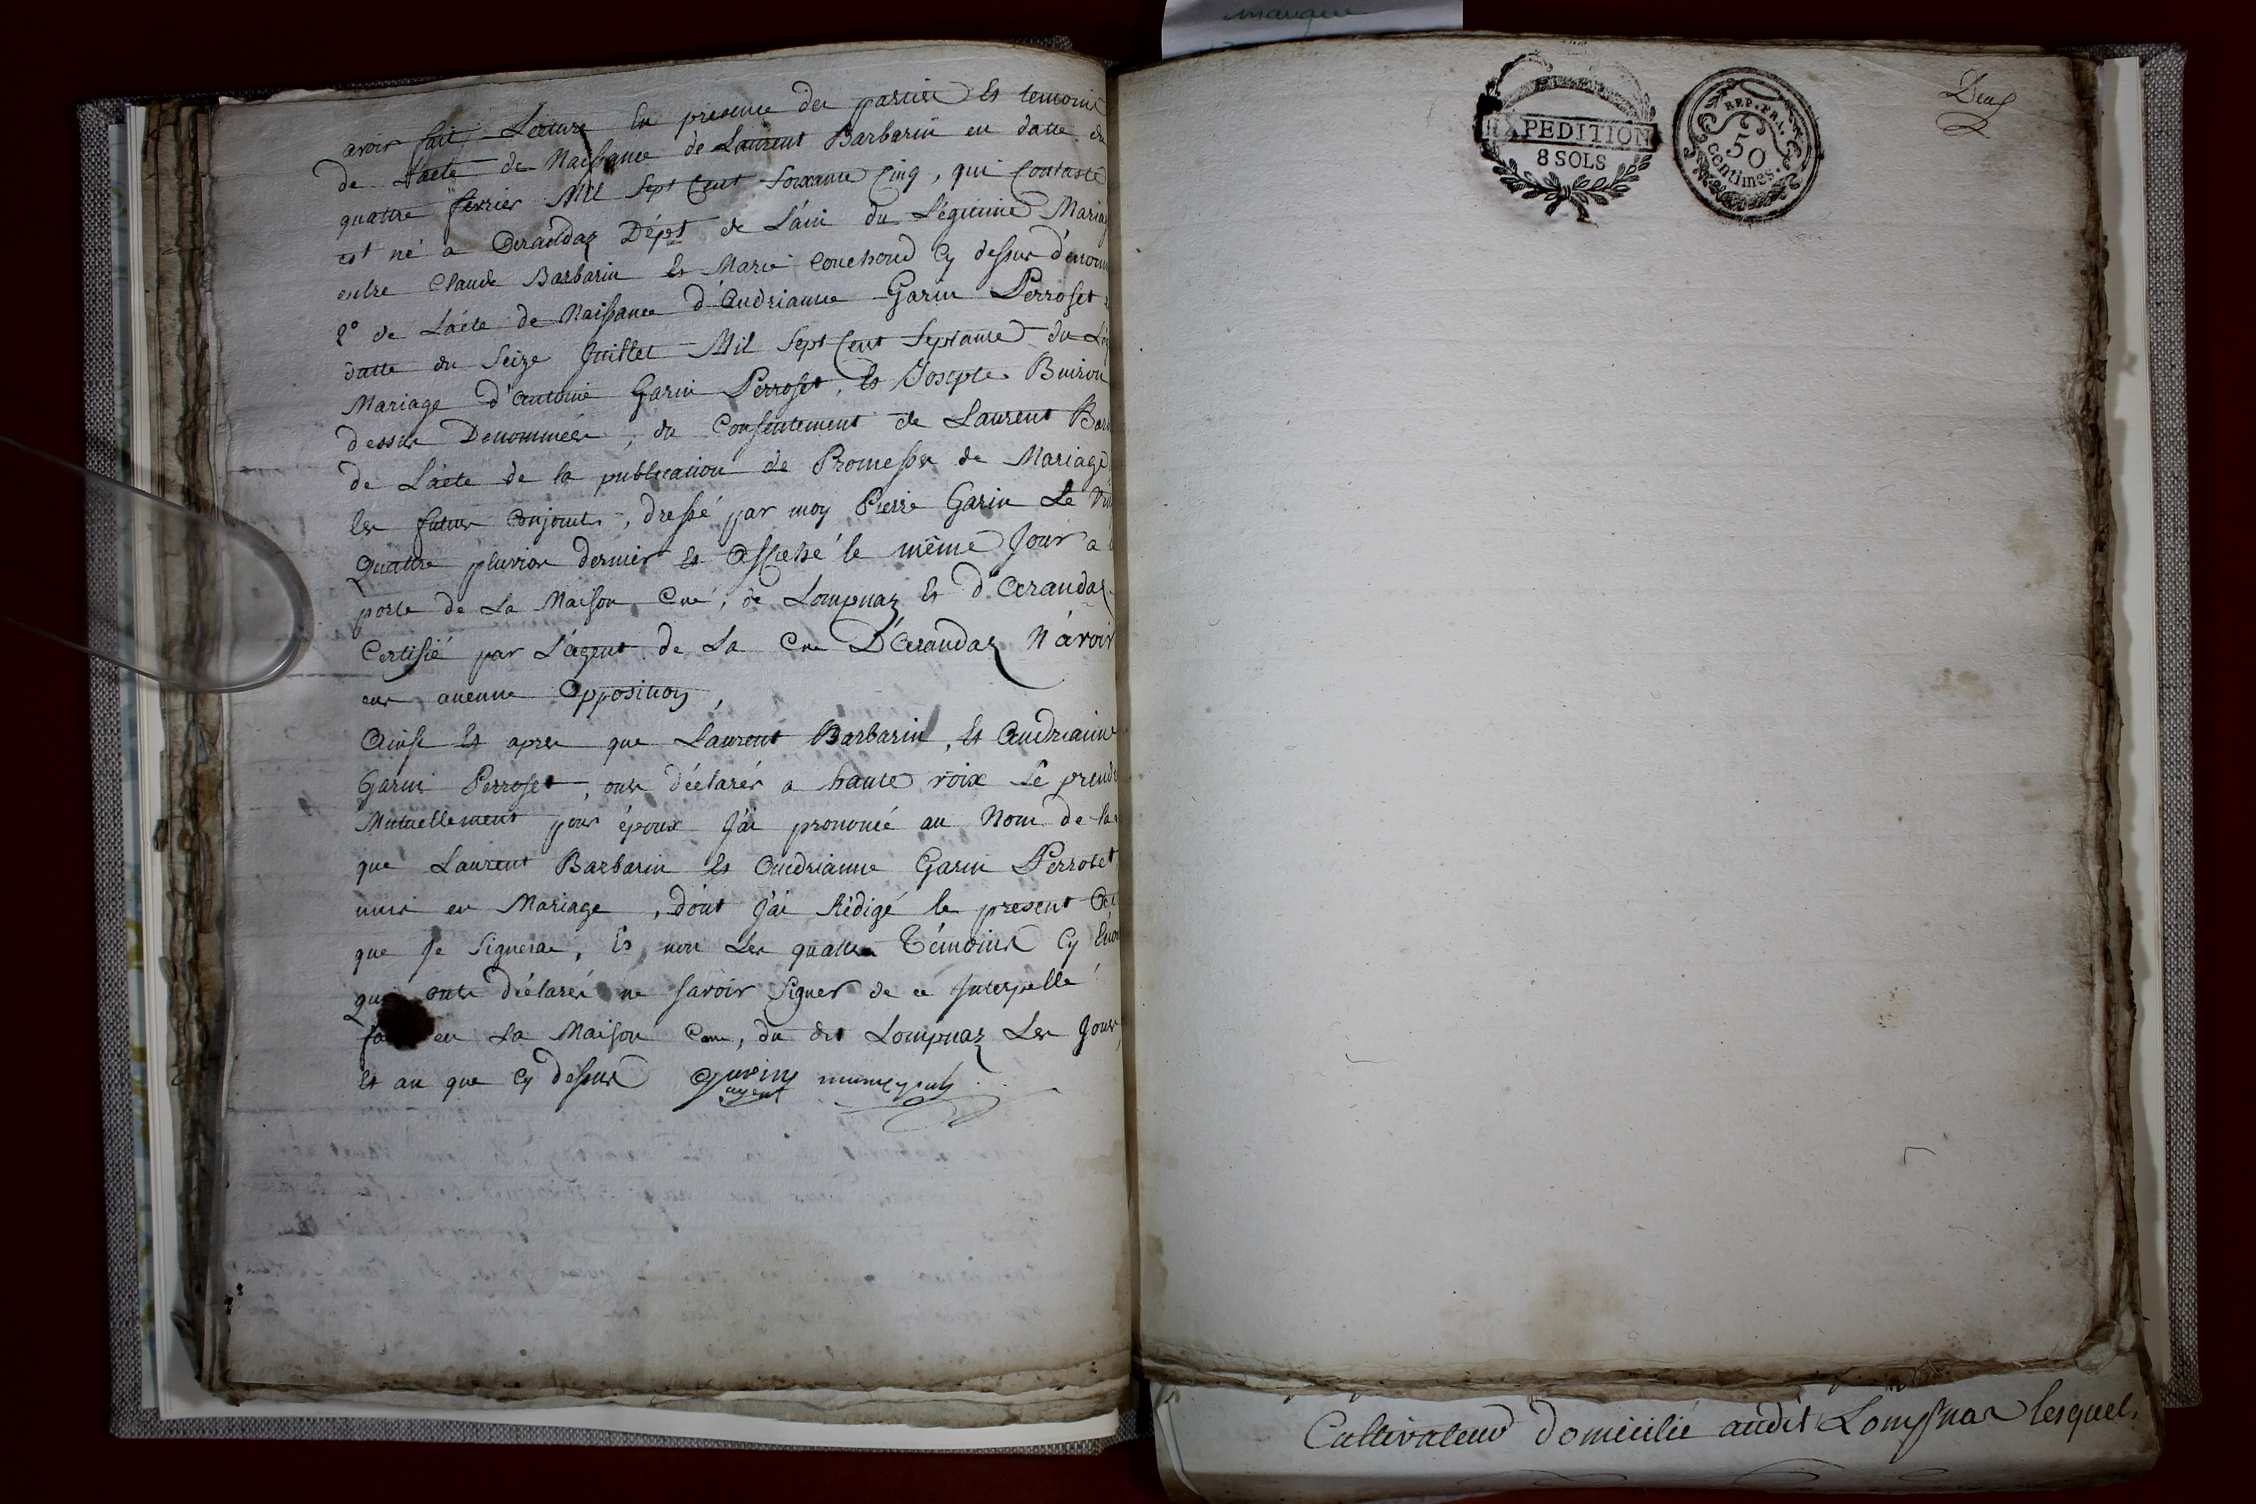 avoir fait Lecture En presence des parties Et temoins
de Lacte de Naissance de Laurent Barbarin en datte du
quattre fevrier Mil Sept Cent Soixante Cinq, qui Constate
est né a Arandaz Dépt de L'ain du Légitime Mariag
entre Claude Barbarin Et Marie Couchoud Cy dessus dénomm
2° de Lácte de Naissance d'Andrianne Garin Perroset
datte du Seize Juillet Mil Sept Cent Septante du Lég
Mariage d'Antoine Garin Perroset, Et Josepte Buiron
dessus Denommées, du Consentement de Laurent Barb
de Lácte de la publication de Promesse de Mariage
les futurs Conjoints, dressé par moy Pierre Garin Le Vin
Quattre pluviose dernier Et Affiché le même Jour a
porte de La Maison Cne, de Lompnaz Et d'Arandaz
Certifié par L'agent de La Cne D'Arandaz N'avoir
eus aucune Opposition,
Ainsi Et apres que Laurent Barbarin, Et Andrianne
Garin Perroset, onts déclarés a haute voix Se prendre
Mutuellement pour époux J'ai prononcé au Nom de la
que Laurent Barbarin Et Andrianne Garin Perroset
unis en Mariage, dont J'ai Rédigé le present Act
que Je Signerai, Et non Les quattre Témoins Cy Énon
qui onts déclarés ne Savoir Signer de ce Interpellé
en La Maison Com, du dit Lompnaz Les Jour,
Et an que Cy dessus Guerin municipal
agent
EXPEDITION
8 SOLS
REP. FRA.
50
centimes.
Deux
Cultivateur domicilié audit Lompnas lesquel.